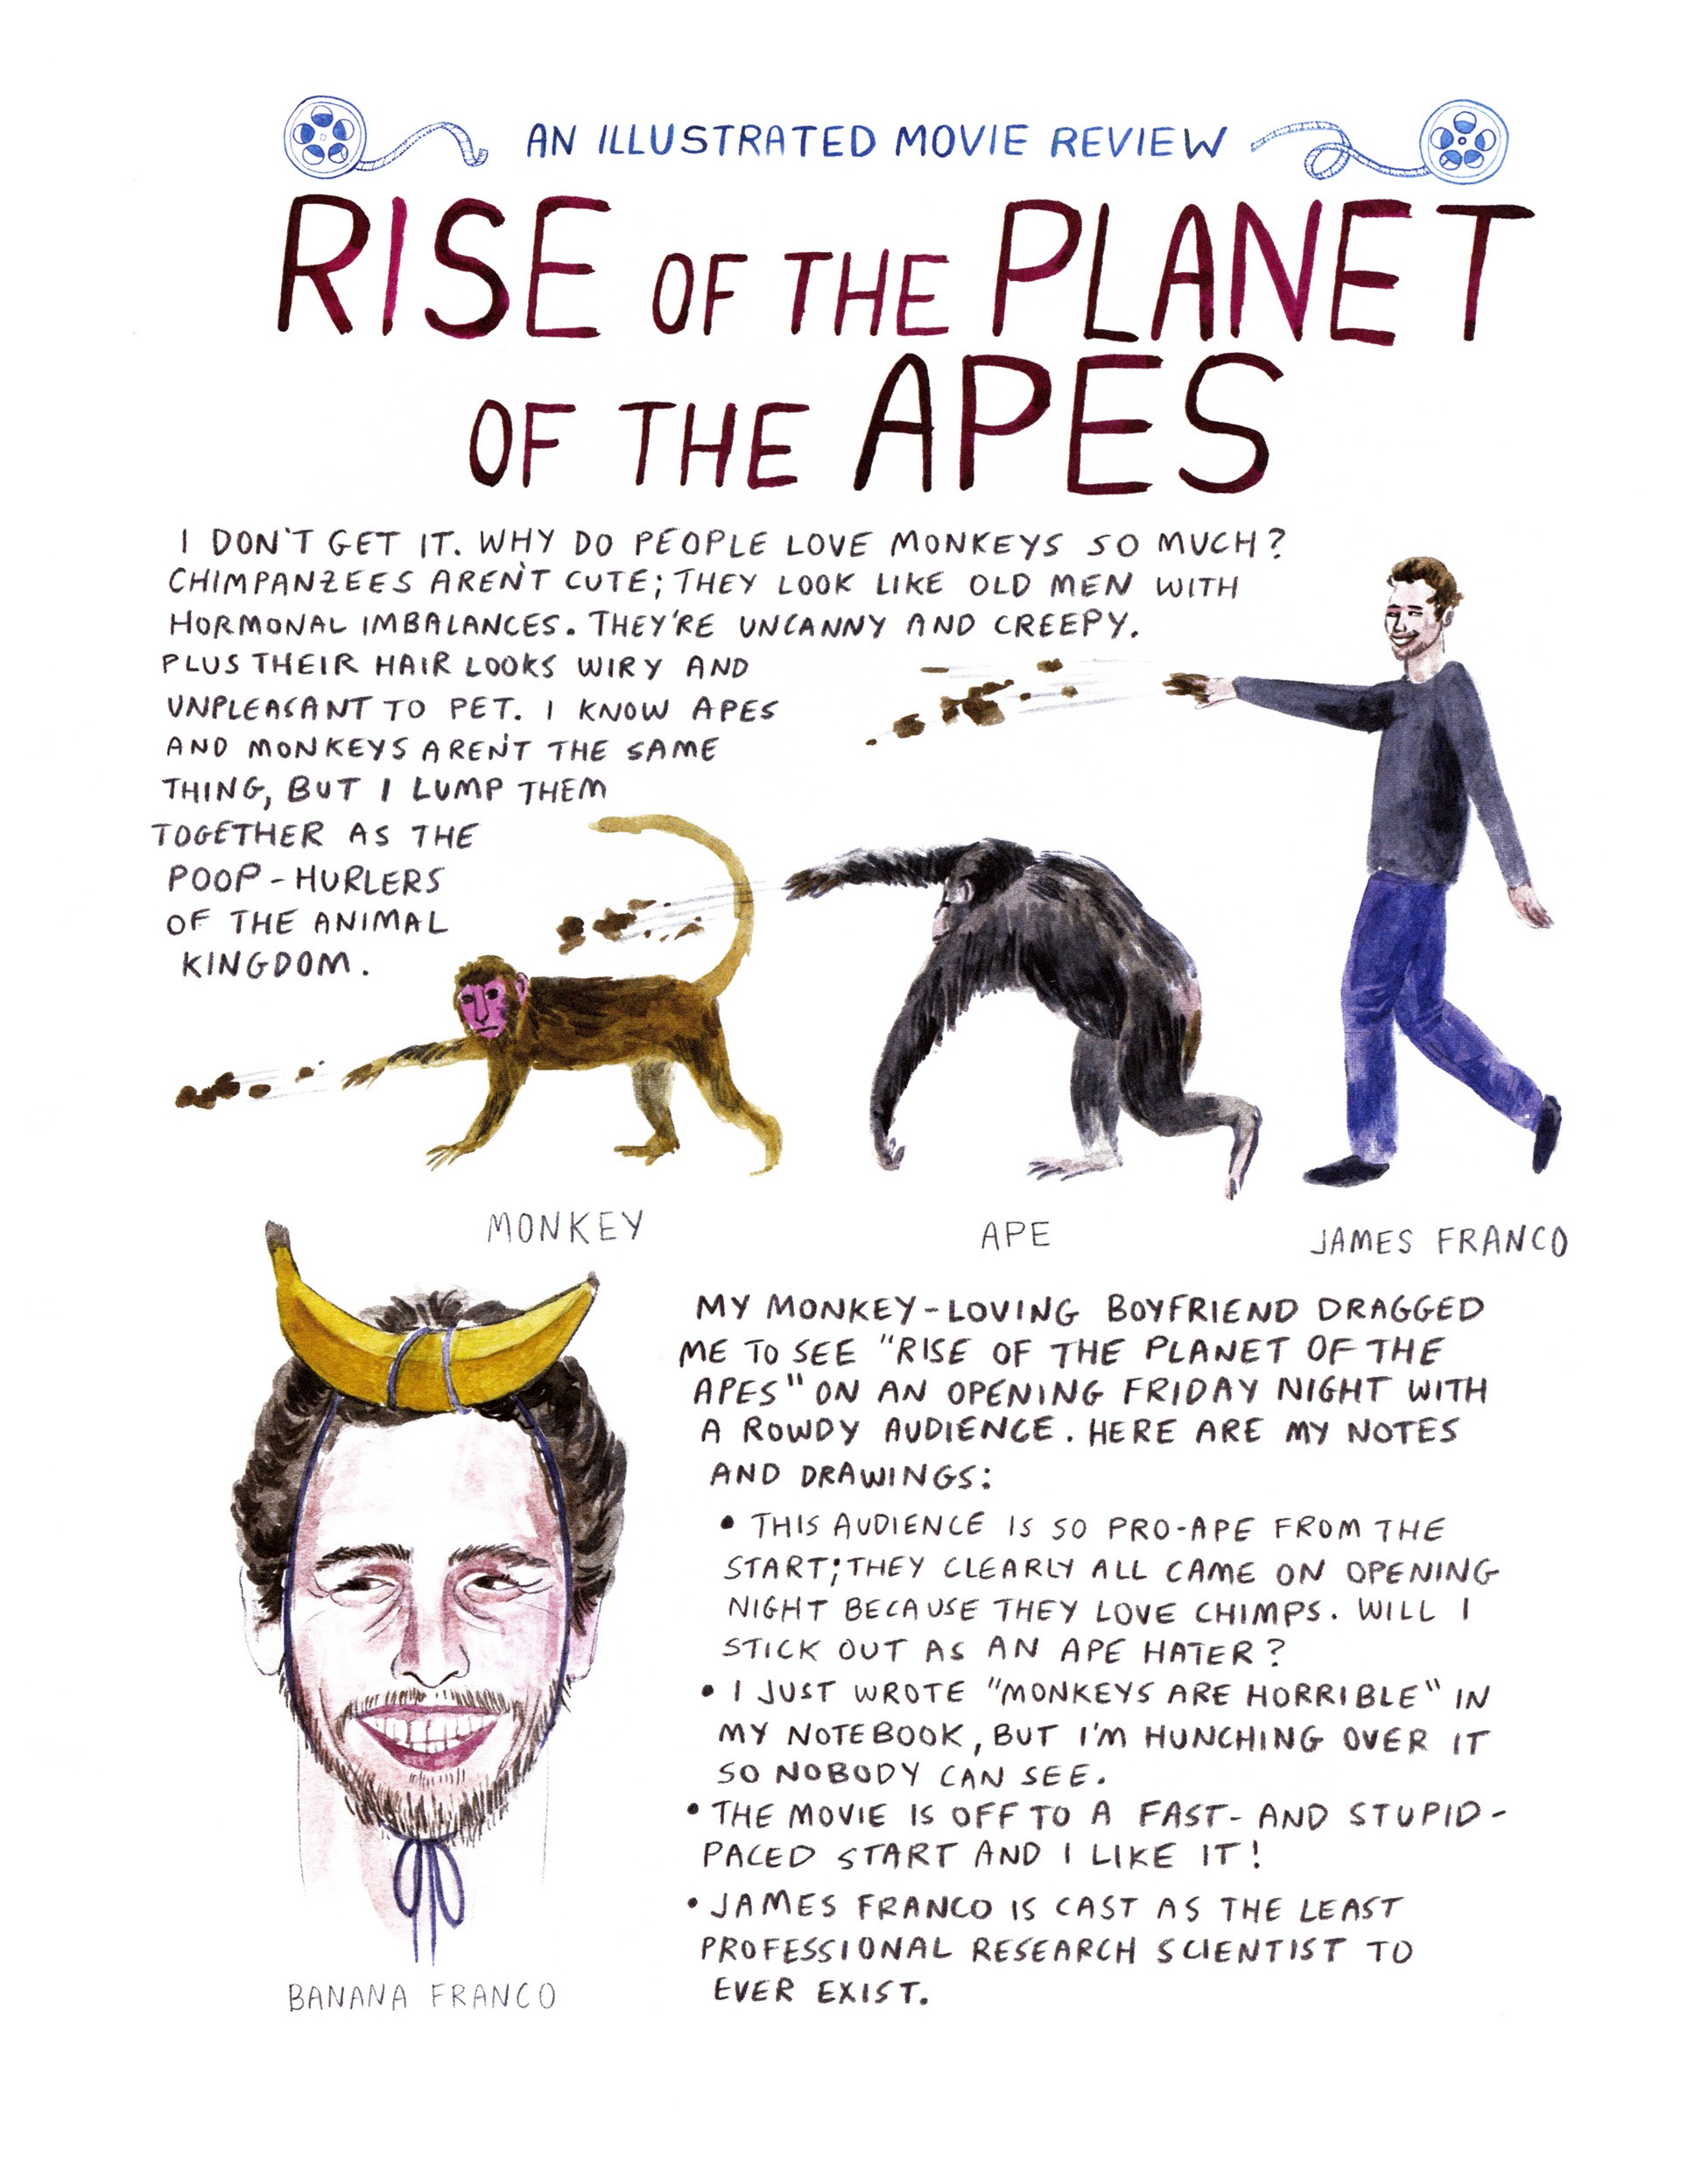 AN ILLUSTRATED MOVIE REVIEW
RISE OF THE PLANET
OF THE APES
I DON'T GET IT. WHY DO PEOPLE LOVE MONKEYS SO MUCH?
CHIMPANZEES AREN'T CUTE; THEY LOOK LIKE OLD MEN WITH
HORMONAL IMBALANCES. THEY'RE UNCANNY AND CREEPY.
PLUS THEIR HAIR LOOKS WIRY AND
UNPLEASANT TO PET. I KNOW APES
AND MONKEYS AREN'T THE SAME
THING, BUT I LUMP THEM
TOGETHER AS THE
POOP-HURLERS
OF THE ANIMAL
KINGDOM.
MONKEY
APE
JAMES FRANCO
MY MONKEY-LOVING BOYFRIEND DRAGGED
ME TO SEE "RISE OF THE PLANET OF THE
APES" ON AN OPENING FRIDAY NIGHT WITH
A ROWDY AUDIENCE. HERE ARE MY NOTES
AND DRAWINGS:
• THIS AUDIENCE IS SO PRO-APE FROM THE
START; THEY CLEARLY ALL CAME ON OPENING
NIGHT BECAUSE THEY LOVE CHIMPS. WILL I
STICK OUT AS AN APE HATER?
• I JUST WROTE "MONKEYS ARE HORRIBLE" IN
MY NOTEBOOK, BUT I'M HUNCHING OVER IT
SO NOBODY CAN SEE.
• THE MOVIE IS OFF TO A FAST- AND STUPID-
PACED START AND I LIKE IT!
• JAMES FRANCO IS CAST AS THE LEAST
PROFESSIONAL RESEARCH SCIENTIST TO
EVER EXIST.
BANANA FRANCO